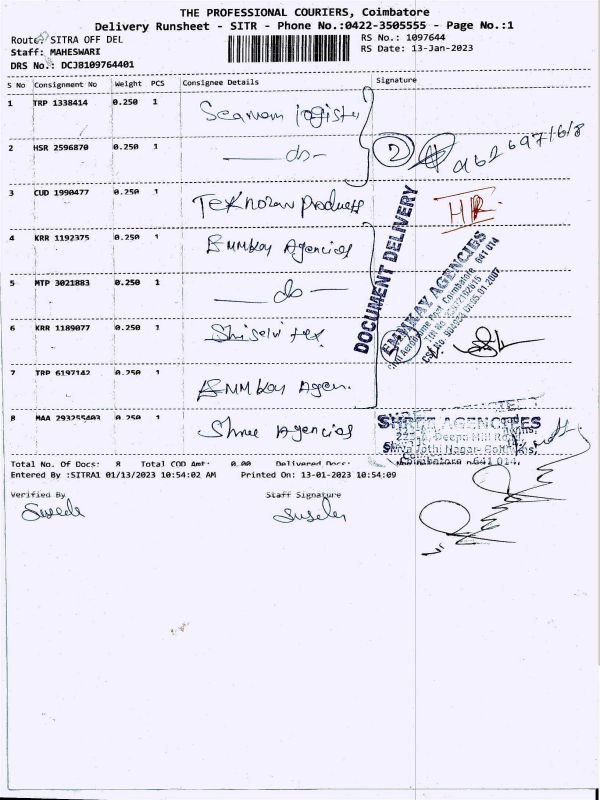 THE PROFESSIONAL COURIERS, Coimbatore
Delivery Runsheet - SITR - Phone No.:0422-3505555 - Page No.:1
Route: SITRA OFF DEL
RS No.: 1097644
Staff: MAHESWARI
RS Date: 13-Jan-2023
DRS No.: DCJ8109764401
S No Consignment No Weight PCS Consignee Details Signature
1 TRP 1338414 0.250 1
2 HSR 2596870 0.250 1 do 2
3 CUD 1990477 0.250 1 Products HR
4 KRR 1192375 0.250 1 Emmkay Agencies
5 MTP 3021883 0.250 1 do
6 KRR 1189077 0.250 1 tex
7 TRP 6197142 0.250 1 Emmkay Agen.
8 MAA 293255403 0.250 1 Shree Agencies
DOCUMENT DELIVERY
EMMKAY AGENCIES
Civil Aerodrome Post, Coimbatore 641 014
SHREE AGENCIES
Coimbatore - 641 014.
Total No. Of Docs: 8 Total COD Amt: 0.00 Delivered Docs:
Entered By :SITRA1 01/13/2023 10:54:02 AM Printed On: 13-01-2023 10:54:09
Verified By Staff Signature